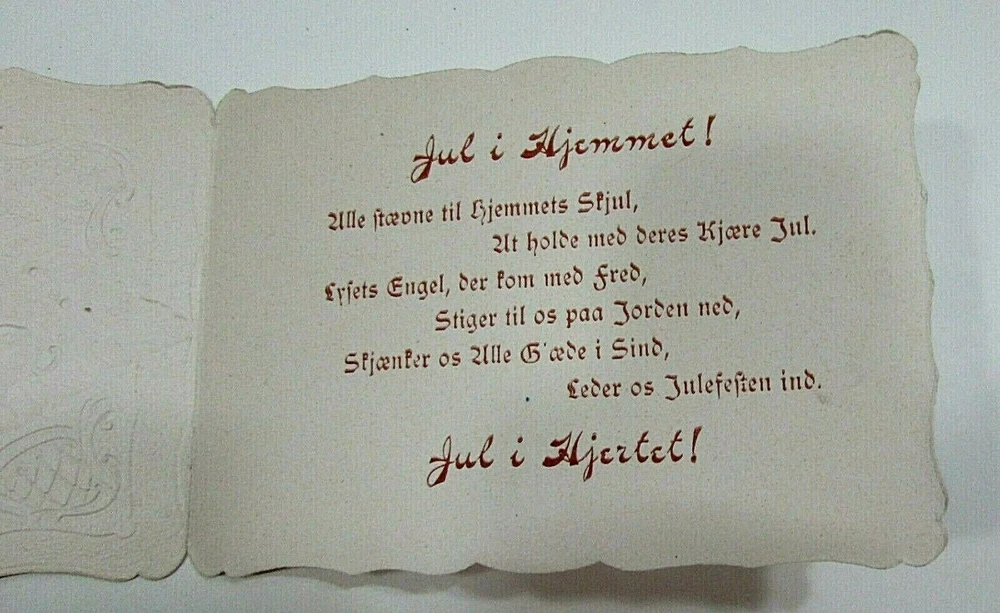 Jul i Hjemmet!
Alle stævne til Hjemmets Skjul,
At holde med deres Kjære Jul.
Lysets Engel, der kom med Fred,
Stiger til os paa Jorden ned,
Skjænker os Alle G'æde i Sind,
Leder os Julefesten ind.
Jul i Hjertet!